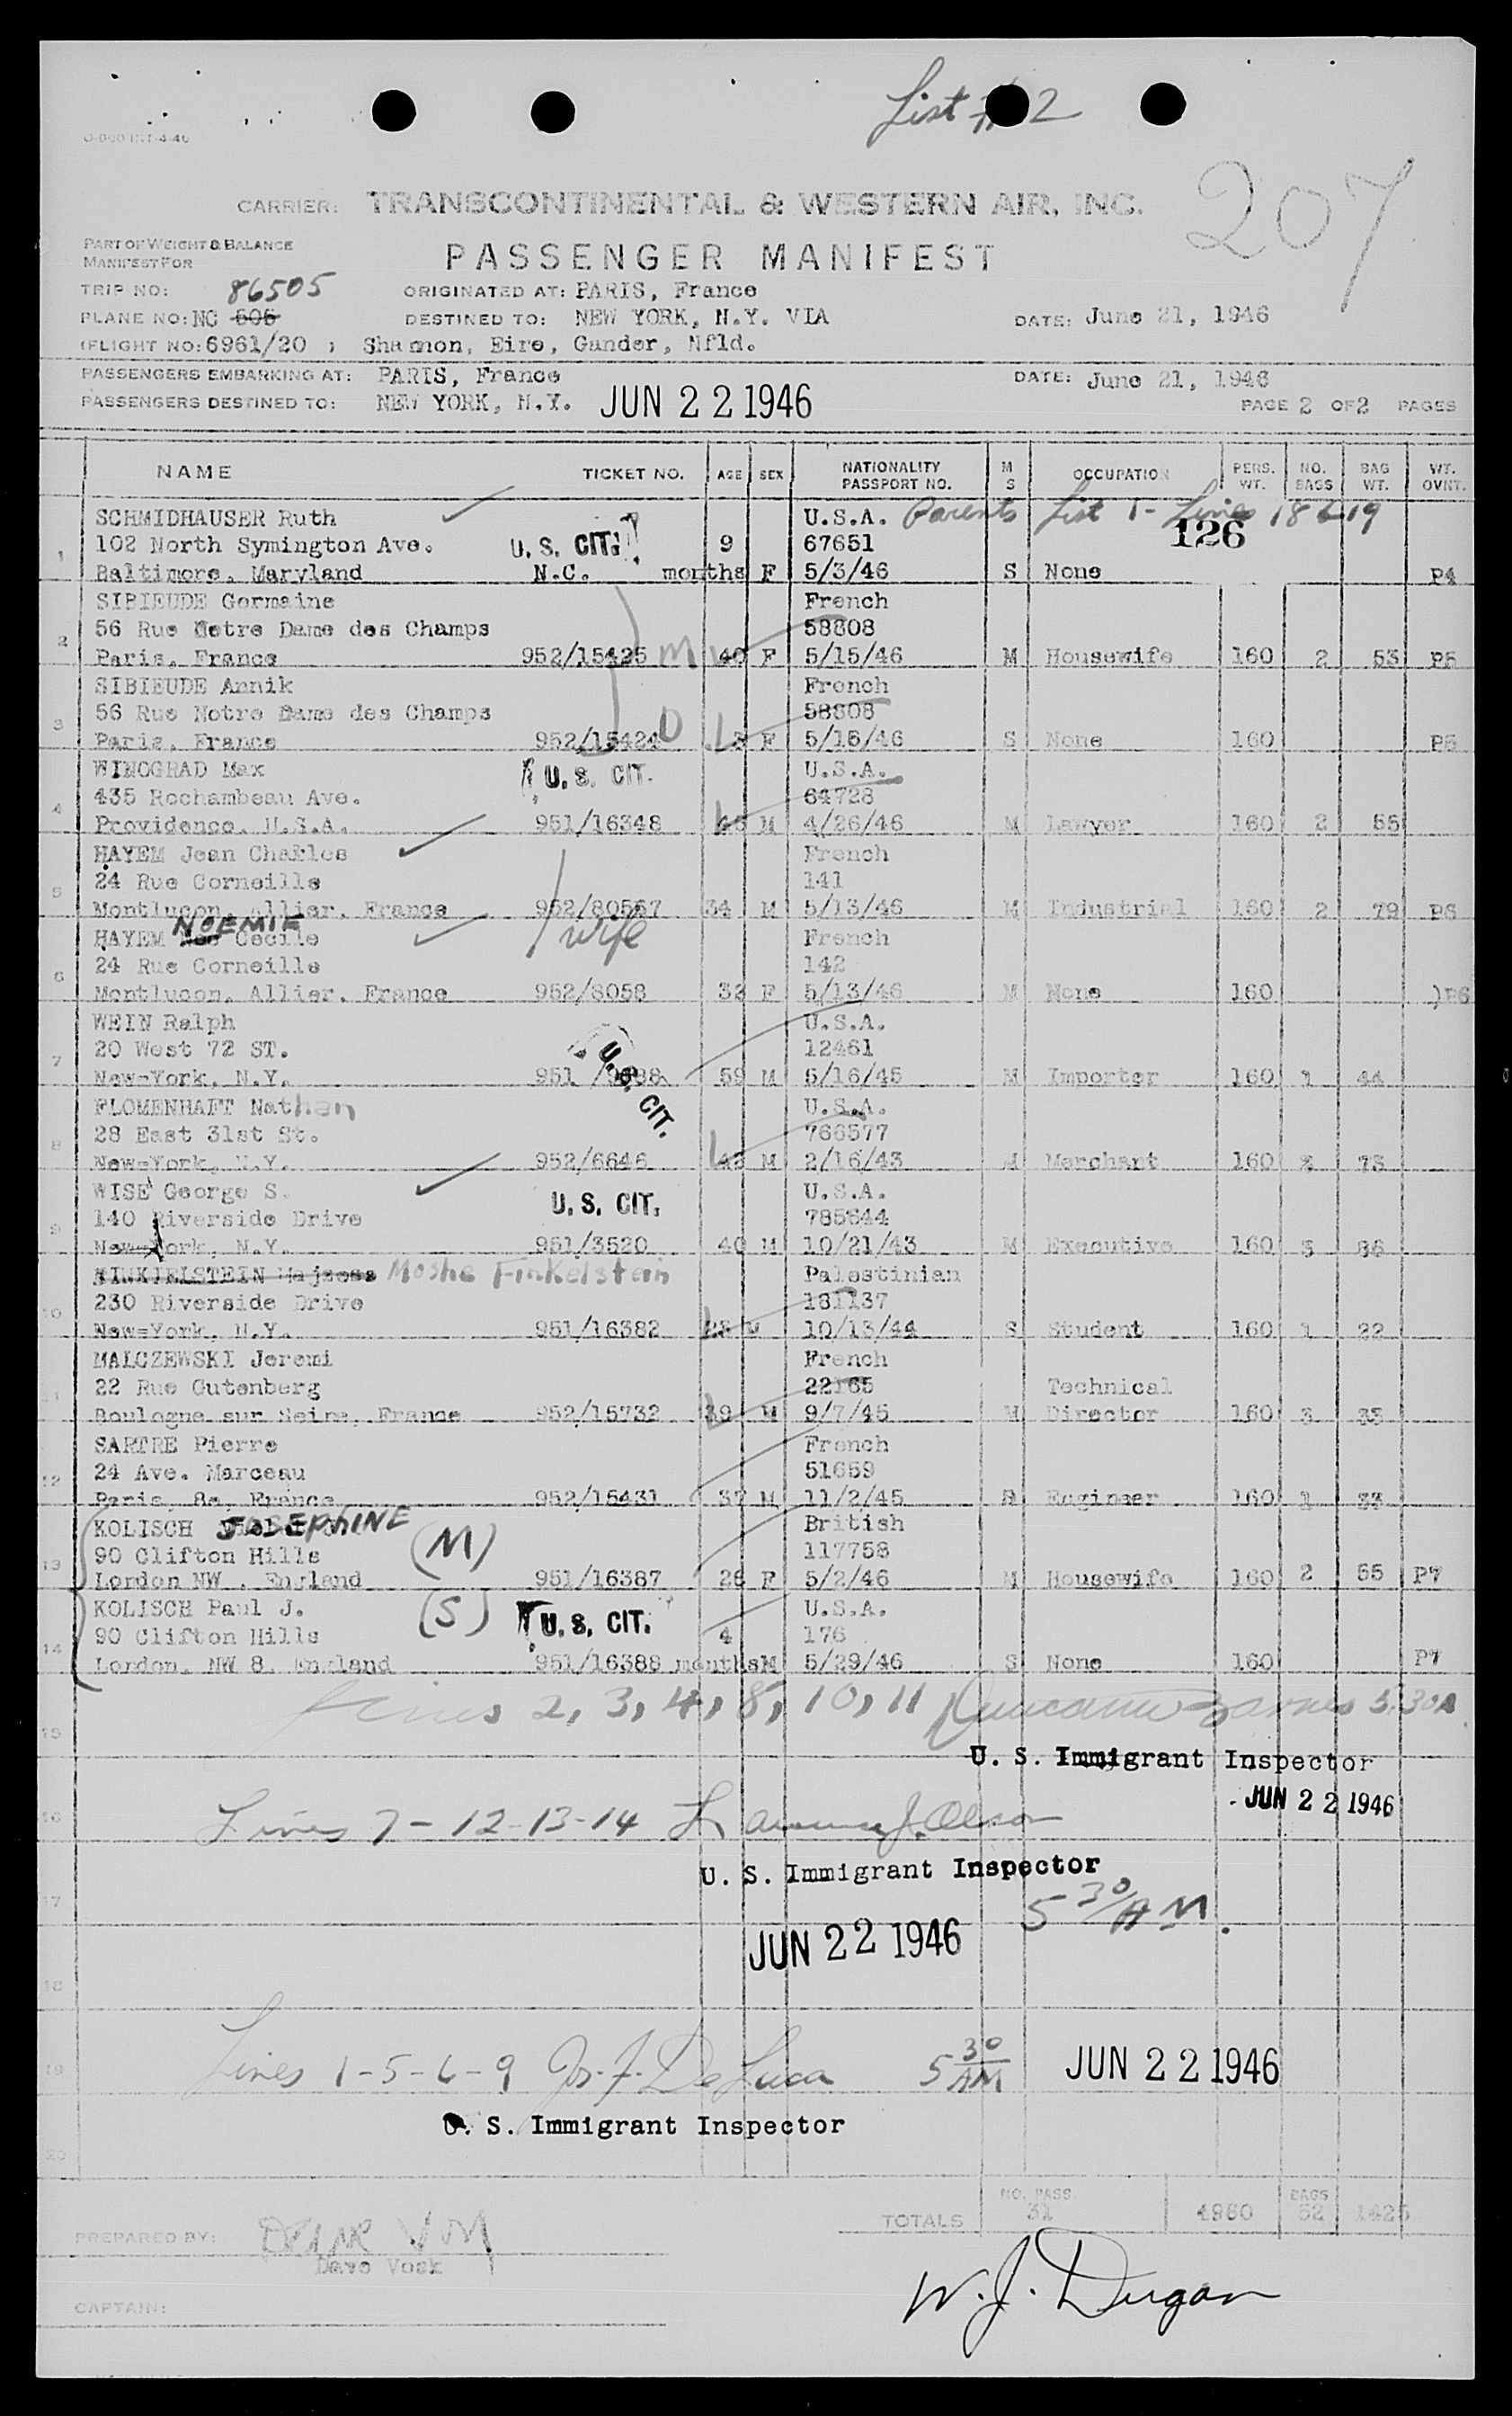 List # 2
207
CARRIER: TRANSCONTINENTAL & WESTERN AIR, INC.
PART OF WEIGHT & BALANCE
MANIFEST FOR
PASSENGER MANIFEST
TRIP NO: 86505 ORIGINATED AT: PARIS, France
PLANE NO: NC 505 DESTINED TO: NEW YORK, N.Y. VIA DATE: June 21, 1946
(FLIGHT NO: 6961/20 ) Shannon, Eire, Gander, Nfld.
PASSENGERS EMBARKING AT: PARIS, France DATE: June 21, 1946
PASSENGERS DESTINED TO: NEW YORK, N.Y. JUN 22 1946 PAGE 2 OF 2 PAGES
NAME TICKET NO. AGE SEX NATIONALITY PASSPORT NO. M S OCCUPATION PERS. WT. NO. BAGS BAG WT. WT. OVNT.
SCHMIDHAUSER Ruth U.S.A. Parents List 1 - Lines 18 & 19
1 102 North Symington Ave. U. S. CIT. 9 67651 126
Baltimore, Maryland N.C. months F 5/3/46 S None P4
SIBIEUDE Germaine French
2 56 Rue Notre Dame des Champs 58808
Paris, France 952/15425 M 40 F 5/15/46 M Housewife 160 2 53 P5
SIBIEUDE Annik French
3 56 Rue Notre Dame des Champs 58808
Paris, France 952/15424 D F 5/15/46 S None 160 P5
WINOGRAD Max U. S. CIT. U.S.A.
4 435 Rochambeau Ave. 64728
Providence, U.S.A. 951/16348 M 4/26/46 M Lawyer 160 2 55
HAYEM Jean Charles French
5 24 Rue Corneille 141
Montlucon, Allier, France 952/80567 34 M 5/13/46 M Industrial 160 2 79 P6
NOEMIE
HAYEM Nee Cecile wife French
6 24 Rue Corneille 142
Montlucon, Allier, France 952/8058 32 F 5/13/46 M None 160 )P6
WEIN Ralph U.S.A.
7 20 West 72 ST. U. S. CIT. 12461
New-York, N.Y. 951 59 M 5/16/45 M Importer 160 1 44
FLOMENHAFT Nathan U.S.A.
8 28 East 31st St. 766577
New-York, N.Y. 952/6646 43 M 2/16/43 M Merchant 160 3 73
WISE George S. U. S. CIT. U.S.A.
9 140 Riverside Drive 785644
New-York, N.Y. 951/3520 40 M 10/21/43 M Executive 160 3 86
Moshe Finkelstein Palestinian
10 230 Riverside Drive 181137
New-York, N.Y. 951/16382 23 M 10/13/44 S Student 160 1 22
MALCZEWSKI Jeremi French
11 22 Rue Gutenberg 22165 Technical
Boulogne sur Seine, France 952/15732 39 M 9/7/45 M Director 160 3 35
SARTRE Pierre French
12 24 Ave. Marceau 51659
Paris, 8e, France 952/15431 37 M 11/2/45 Engineer 160 1 33
KOLISCH JOSEPHINE (M) British
13 90 Clifton Hills 117758
London NW , England 951/16387 26 F 5/2/46 M Housewife 160 2 55 P7
KOLISCH Paul J. (S) U. S. CIT. U.S.A.
14 90 Clifton Hills 4 176
London, NW 8, England 951/16388 months M 5/29/46 S None 160 P7
15 Lines 2, 3, 4, 8, 10, 11 Barnes 5.30A
U. S. Immigrant Inspector
JUN 22 1946
16 Lines 7 - 12 - 13 - 14 J. Olson
U. S. Immigrant Inspector
17 5 30/AM.
JUN 22 1946
18
19 Lines 1 - 5 - 6 - 9 Jos. F. De Luca 5 30 AM JUN 22 1946
U. S. Immigrant Inspector
20
TOTALS NO. PASS. 31 4960 BAGS 52 1425
PREPARED BY:
Dave Vosk
W. J. Dugan
CAPTAIN: